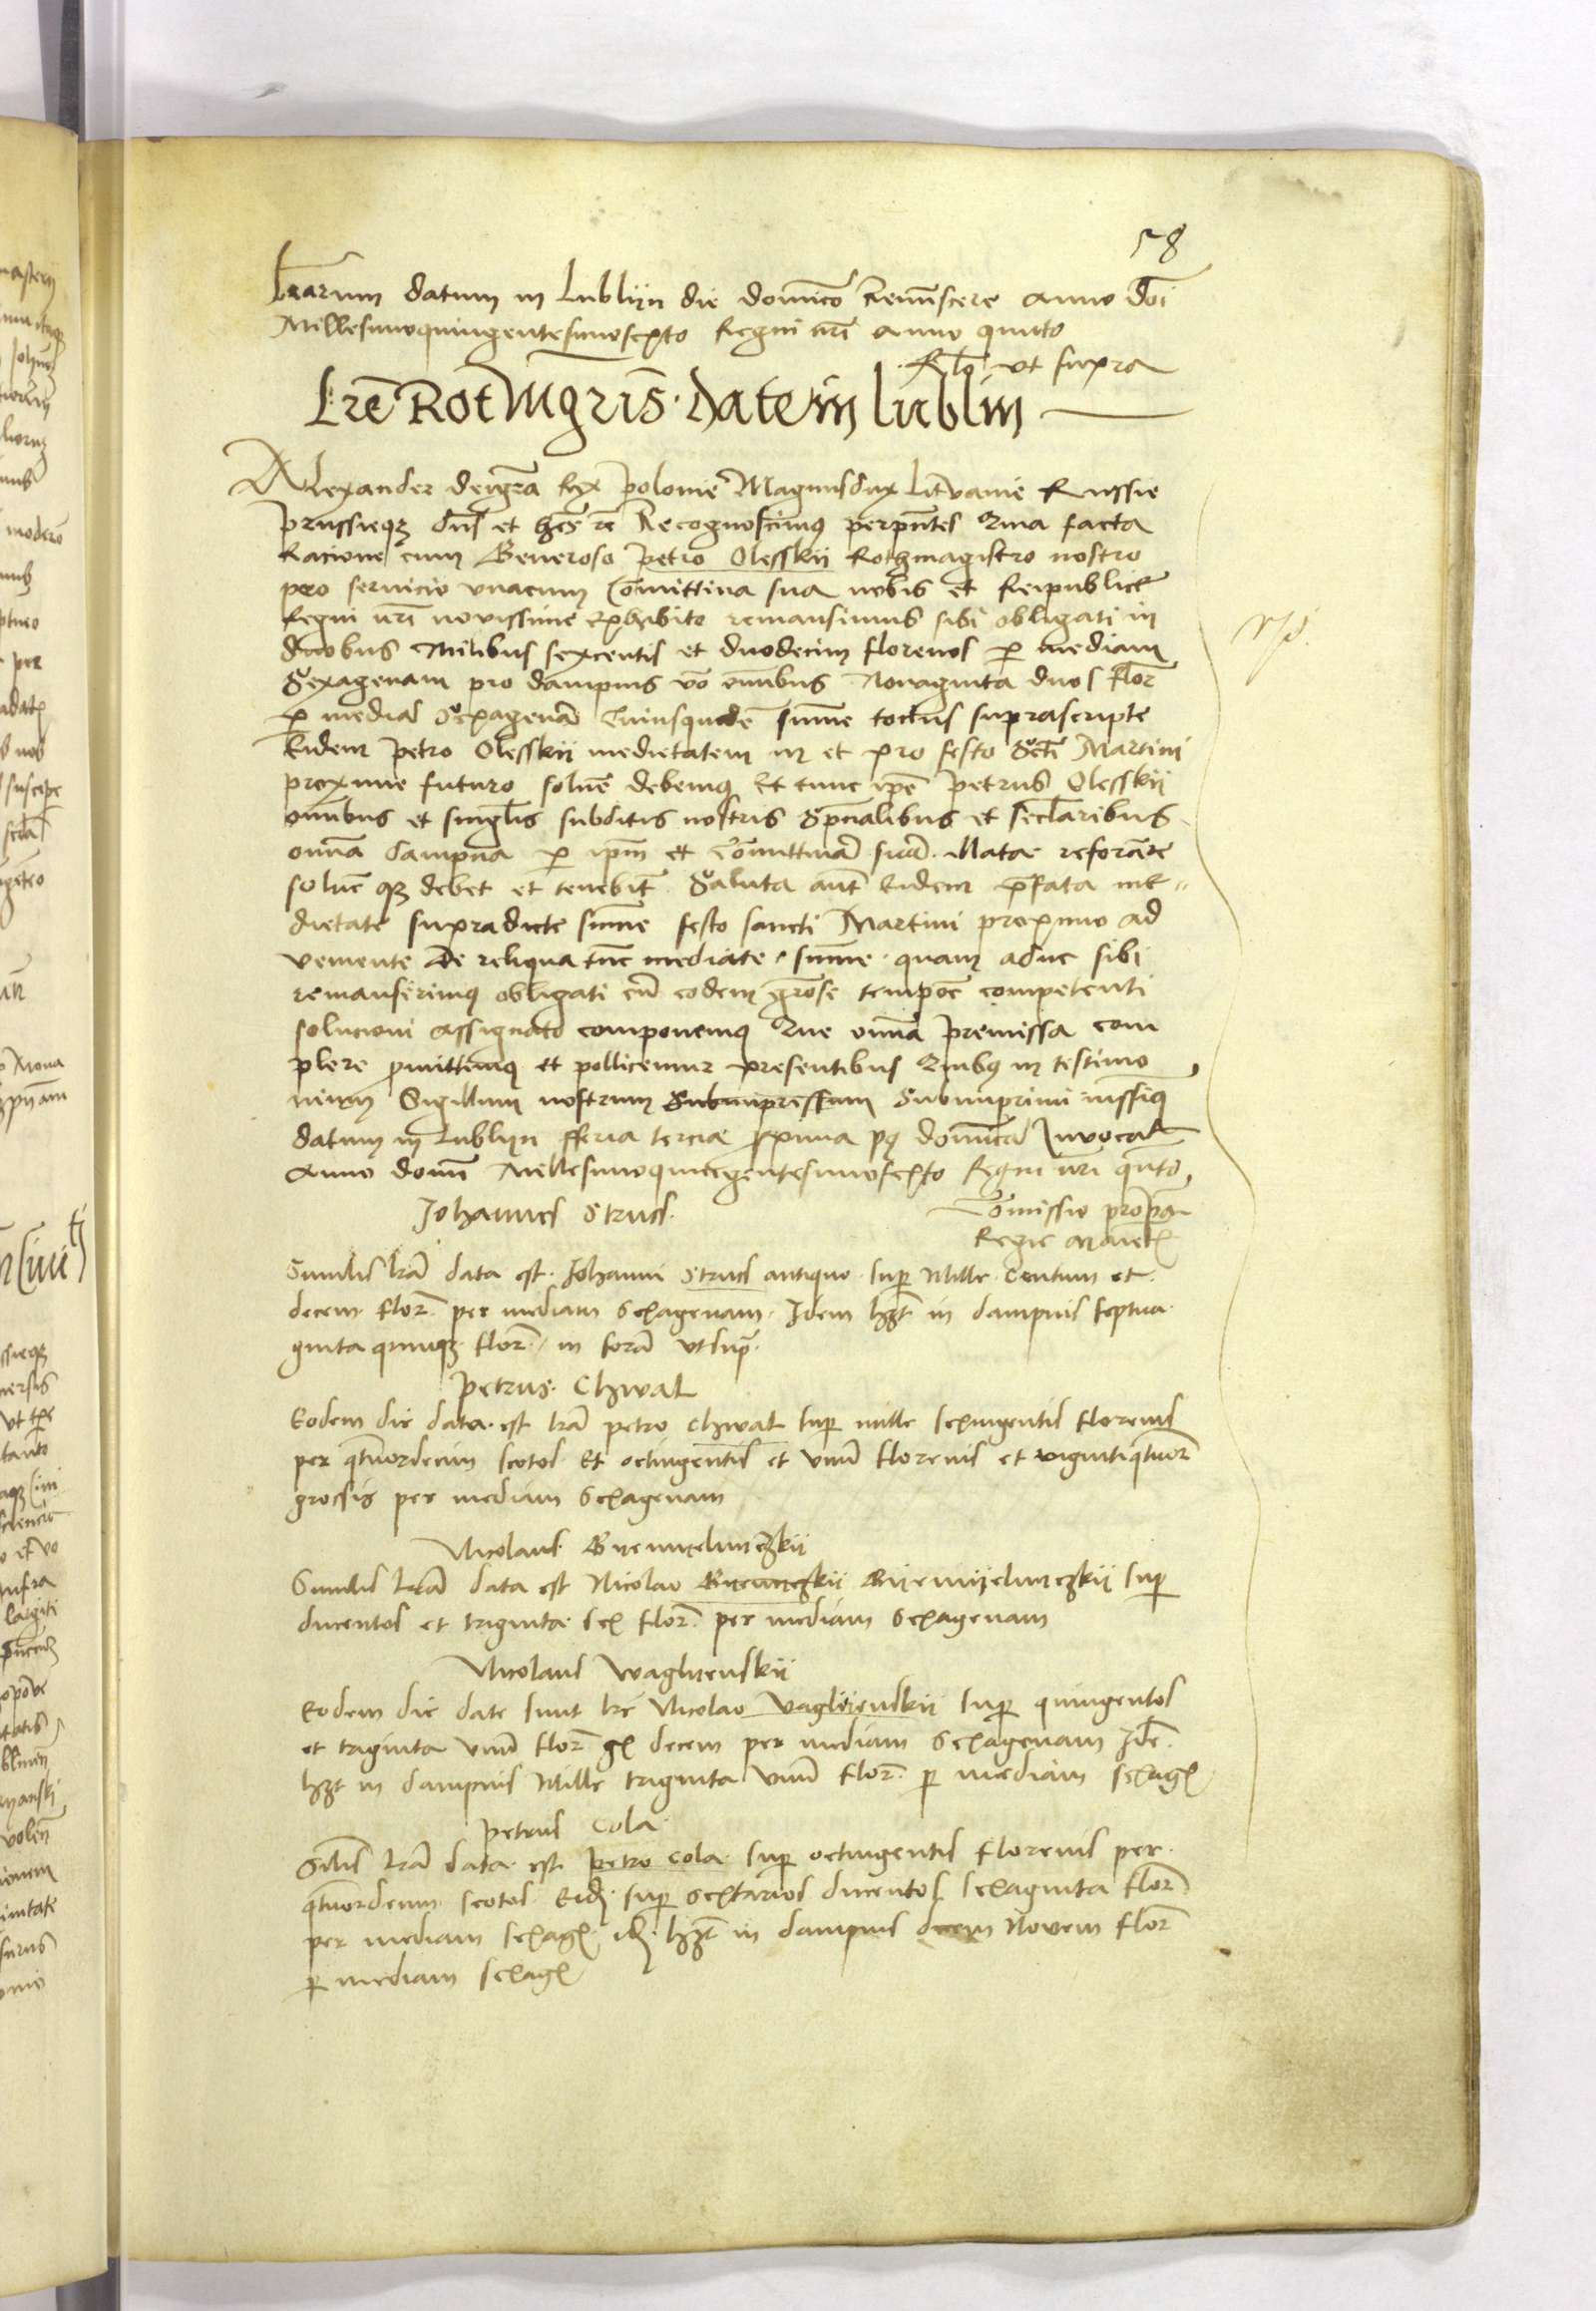 58
l̄rarum datum in Lublijn die domico Remiscere anno doi
Millesimoquingentesimosexto Regni nri anno quinto
Rlo ut supra
Lre Rotmgris date in lublin
Alexander dei gra Rex polonie Magnus dux Lithvanie Russie
prussieqz dns et heres rc Recognoscimus per pntes Quia facta
Racione cum Generoso petro Olesskij Rothmagistro nostro
pro servicio vnacum Comittiva sua nobis et Reipublice
Regni nri novissime exhibito remansimus sibi obligati in
duobus Milibus sexcentis et duodecim florenos per mediam
Sexagenam pro dampnis vo omnibus Nonaginta duos flor
per media Sexagena Cuiusquide sume tocius suprascripte
Eidem petro Olesskij medietatem in et pro festo Scti Martini
proxime futuro solue debemus Et tunc ipe petrus Olesskij
omnibus et singlis subditis nostris Spualibus et seclaribus
omia dampna per ipm et Comittiua sua illata reforare
solue qz debet et tenebit Saluta aut Eidem pfata me-
dietate supradicte sume festo sancti Martini proximo ad
veniente De reliqua tuc mediate sume quam aduc sibi
remanserimus obligati cu eodem grose tempore competenti
solucioni assignato componemus Que omia premissa com
plere promittimus et pollicemur presentibus Quibus in testimo
nium Sigillum nostrum Subimpressum Subimprimi iussimus
datum in Lublijn fferia tercia proxima post domica Invocat
anno domi Millesimoquingentesimosexto Regni nri quinto
Johannes Strus
Comissio propria
Regie maiet
Similis lra data est Johanni Strus antiquo sup Mille Centum et
decem flor per mediam Sexagenam Idem hzt in dampnis septua
ginta quinqz flor in fora ut sup
petrus Chwal
Eodem die data est lra petro Chwal sup mille sexingentis florenis
per qtuordecim scotos Et octingentis et vnu florenis et vigintiqtuor
grossis per mediam Sexagenam
Nicolaus Bijenijelmczkij
Similis lra data est Nicolao Bijenieczkij Bijemijelimczkij sup
ducentos et triginta sex flor per mediam Sexagenam
Nicolaus Waglijenskij
Eodem die date sunt lre Nicolao Vaglijenskij sup quingentos
et triginta vnu flor gx decem per mediam Sexagenam Ide
hzt in dampnis Mille triginta vnu flor p mediam sexag
petrus Cola
Silis lra data est petro Cola sup octingentis florenis per
qtuordecim scotos Eid sup Sextarios ducentos sexaginta flor
per mediam sexag id hzt in dampnis decem Novem flor
p mediam sexag